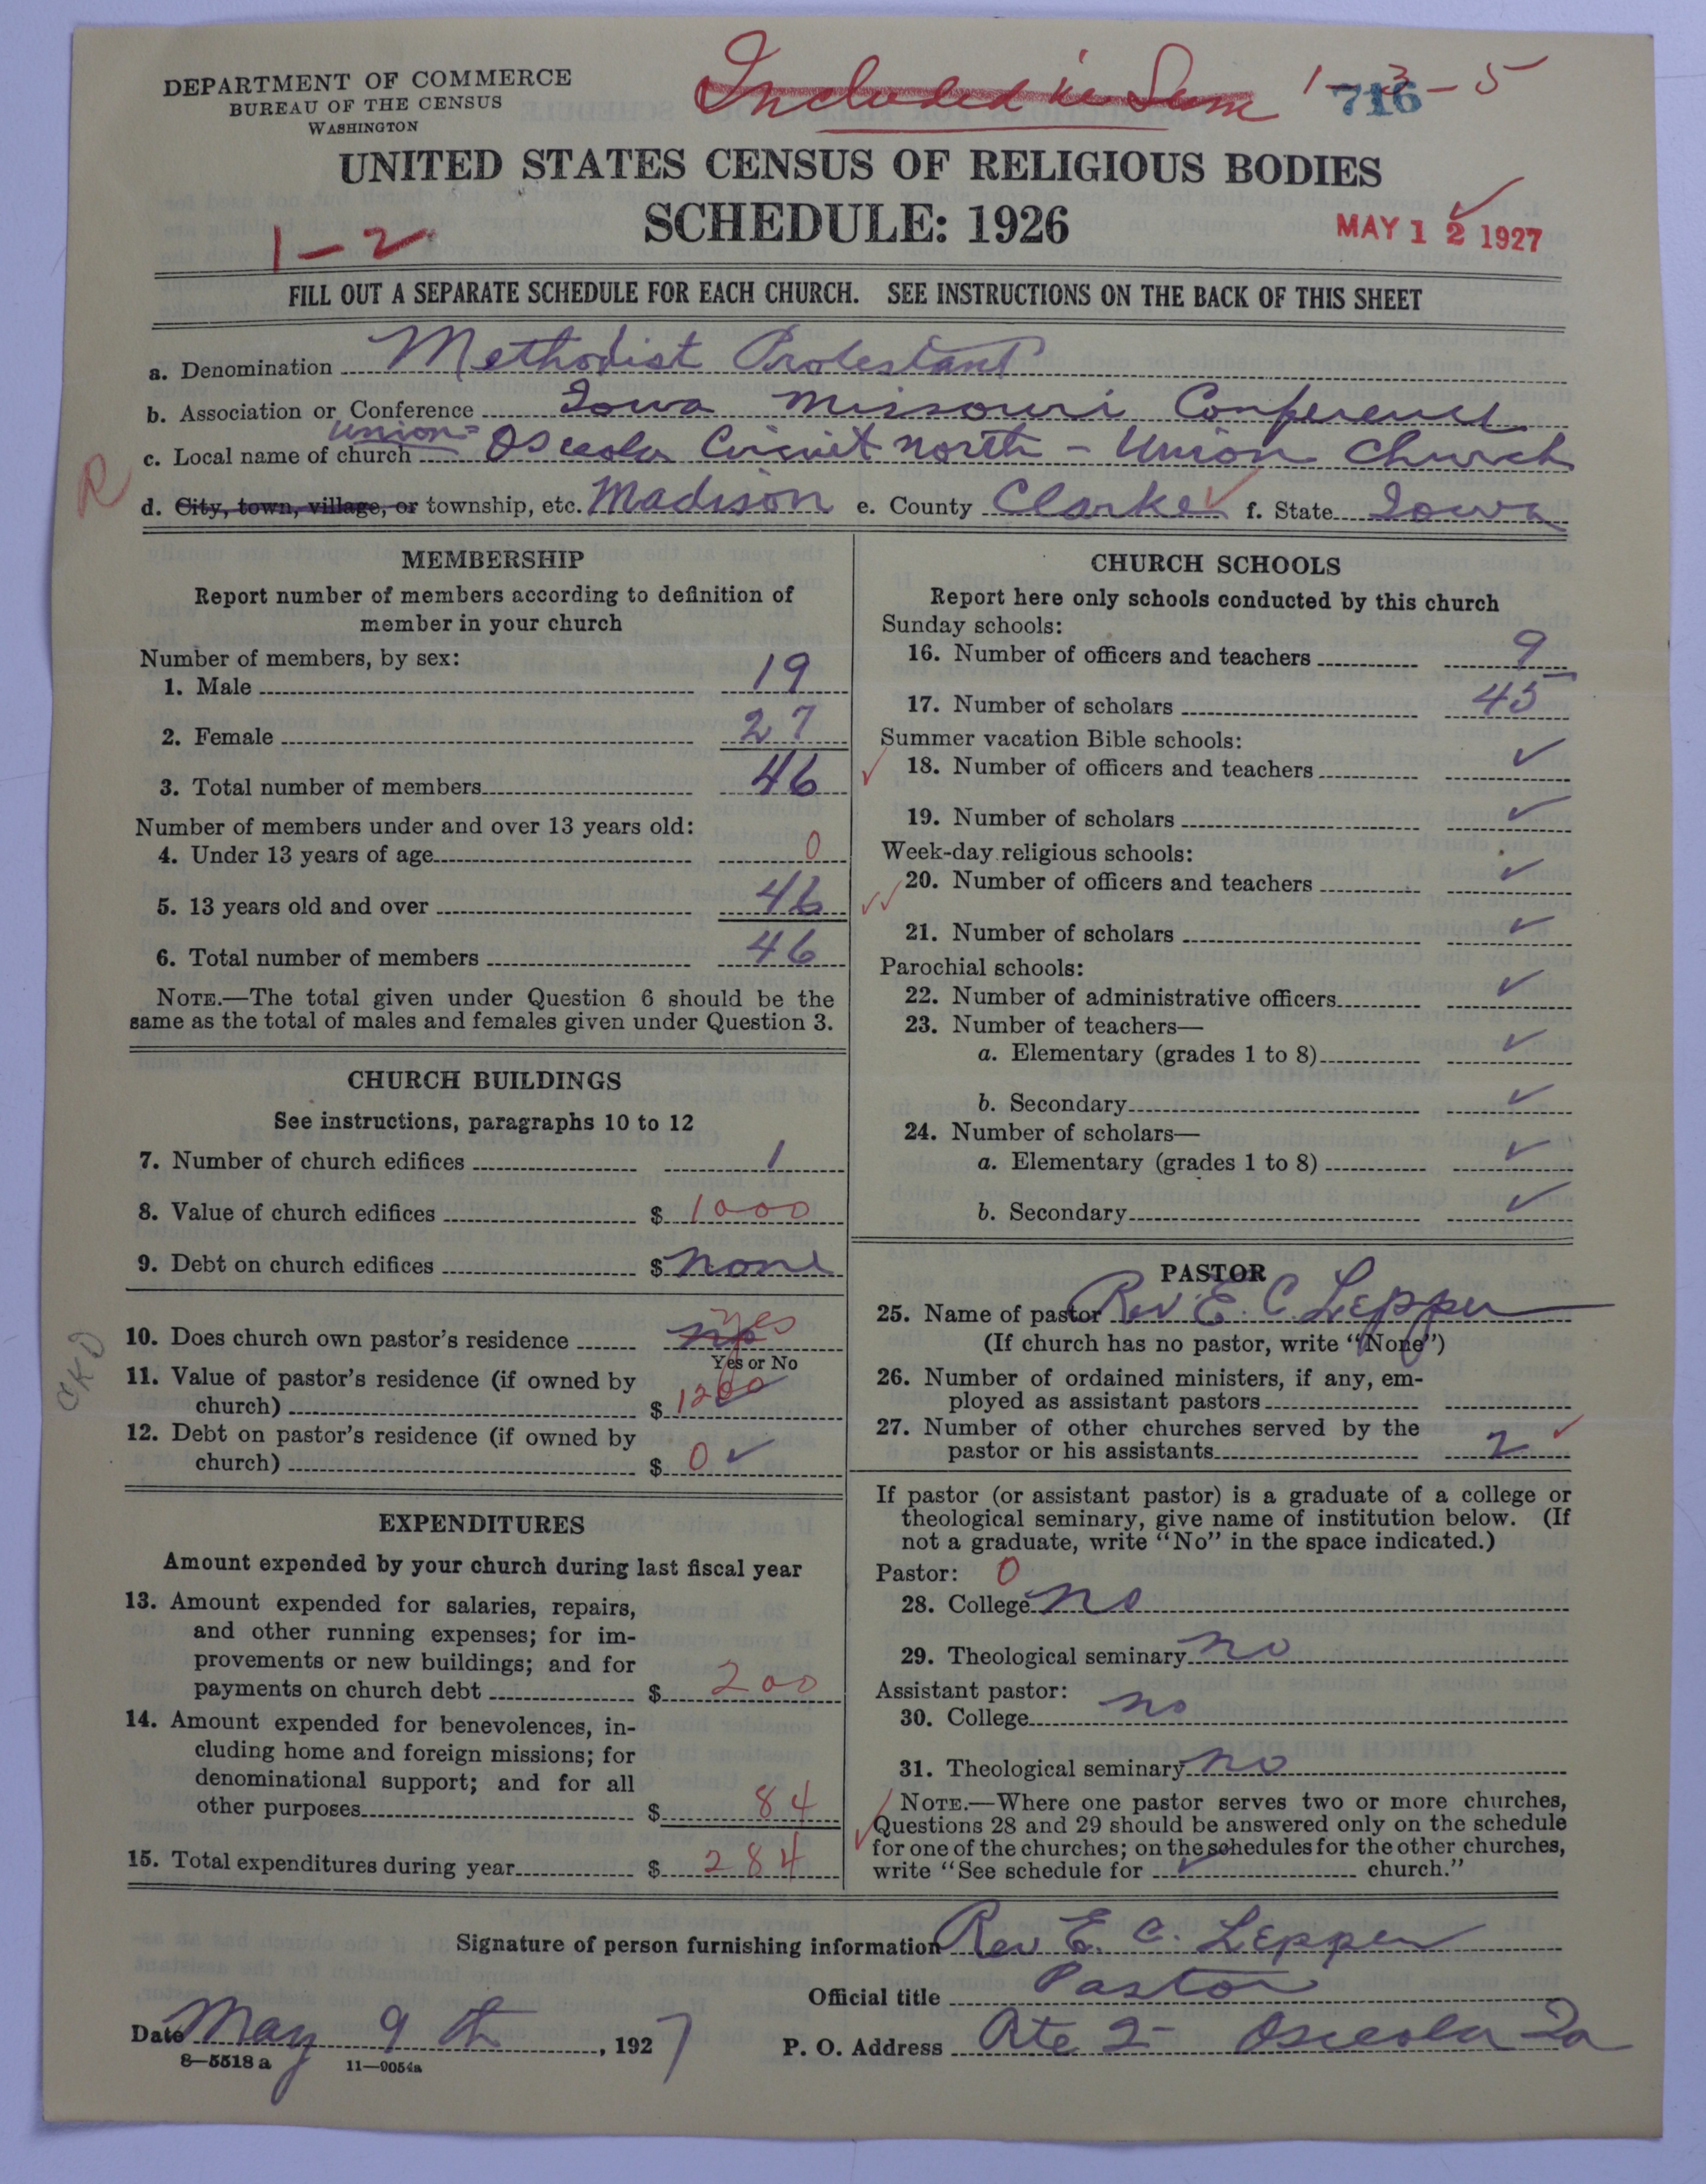 DEPARTMENT OF COMMERCE
BUREAU OF THE CENSUS
WASHINGTON
Included in Sum 1-3-5
716
UNITED STATES CENSUS OF RELIGIOUS BODIES
SCHEDULE: 1926
1-2
MAY 12 1927
FILL OUT A SEPARATE SCHEDULE FOR EACH CHURCH. SEE INSTRUCTIONS ON THE BACK OF THIS SHEET
a. Denomination Methodist Protestant
b. Association or Conference Iowa Missouri Conference
c. Local name of church Union= Osceola Circuit north - Union Church
R
d. City, town, village, or township, etc. Madison e. County Clarke ✓ f. State Iowa
MEMBERSHIP
Report number of members according to definition of
member in your church
Number of members, by sex:
1. Male 19
2. Female 27
3. Total number of members 46
Number of members under and over 13 years old:
4. Under 13 years of age 0
5. 13 years old and over 46
6. Total number of members 46
NOTE.—The total given under Question 6 should be the
same as the total of males and females given under Question 3.
CHURCH BUILDINGS
See instructions, paragraphs 10 to 12
7. Number of church edifices 1
8. Value of church edifices $ 1000
9. Debt on church edifices $ none
10. Does church own pastor's residence no yes
Yes or No
CKD
11. Value of pastor's residence (if owned by
church) $ 1200
12. Debt on pastor's residence (if owned by
church) $ 0 ✓
EXPENDITURES
Amount expended by your church during last fiscal year
13. Amount expended for salaries, repairs,
and other running expenses; for im-
provements or new buildings; and for
payments on church debt $ 200
14. Amount expended for benevolences, in-
cluding home and foreign missions; for
denominational support; and for all
other purposes $ 84
15. Total expenditures during year $ 284
CHURCH SCHOOLS
Report here only schools conducted by this church
Sunday schools:
16. Number of officers and teachers 9
17. Number of scholars 45
Summer vacation Bible schools:
✓ 18. Number of officers and teachers ✓
19. Number of scholars ✓
Week-day religious schools:
✓✓ 20. Number of officers and teachers ✓
21. Number of scholars ✓
Parochial schools:
22. Number of administrative officers ✓
23. Number of teachers—
a. Elementary (grades 1 to 8) ✓
b. Secondary ✓
24. Number of scholars—
a. Elementary (grades 1 to 8) ✓
b. Secondary ✓
PASTOR
25. Name of pastor Rev. E. C. Lepper
(If church has no pastor, write "None")
26. Number of ordained ministers, if any, em-
ployed as assistant pastors
27. Number of other churches served by the
pastor or his assistants 2 ✓
If pastor (or assistant pastor) is a graduate of a college or
theological seminary, give name of institution below. (If
not a graduate, write "No" in the space indicated.)
Pastor: 0
28. College no
29. Theological seminary no
Assistant pastor:
30. College no
31. Theological seminary no
NOTE.—Where one pastor serves two or more churches,
✓ Questions 28 and 29 should be answered only on the schedule
for one of the churches; on the schedules for the other churches,
write "See schedule for ✓ church."
Signature of person furnishing information Rev E. C. Lepper
Official title Pastor
Date May 9 th, 1927
P. O. Address Rte 2- Osceola Ia
8—5518 a 11—9054a